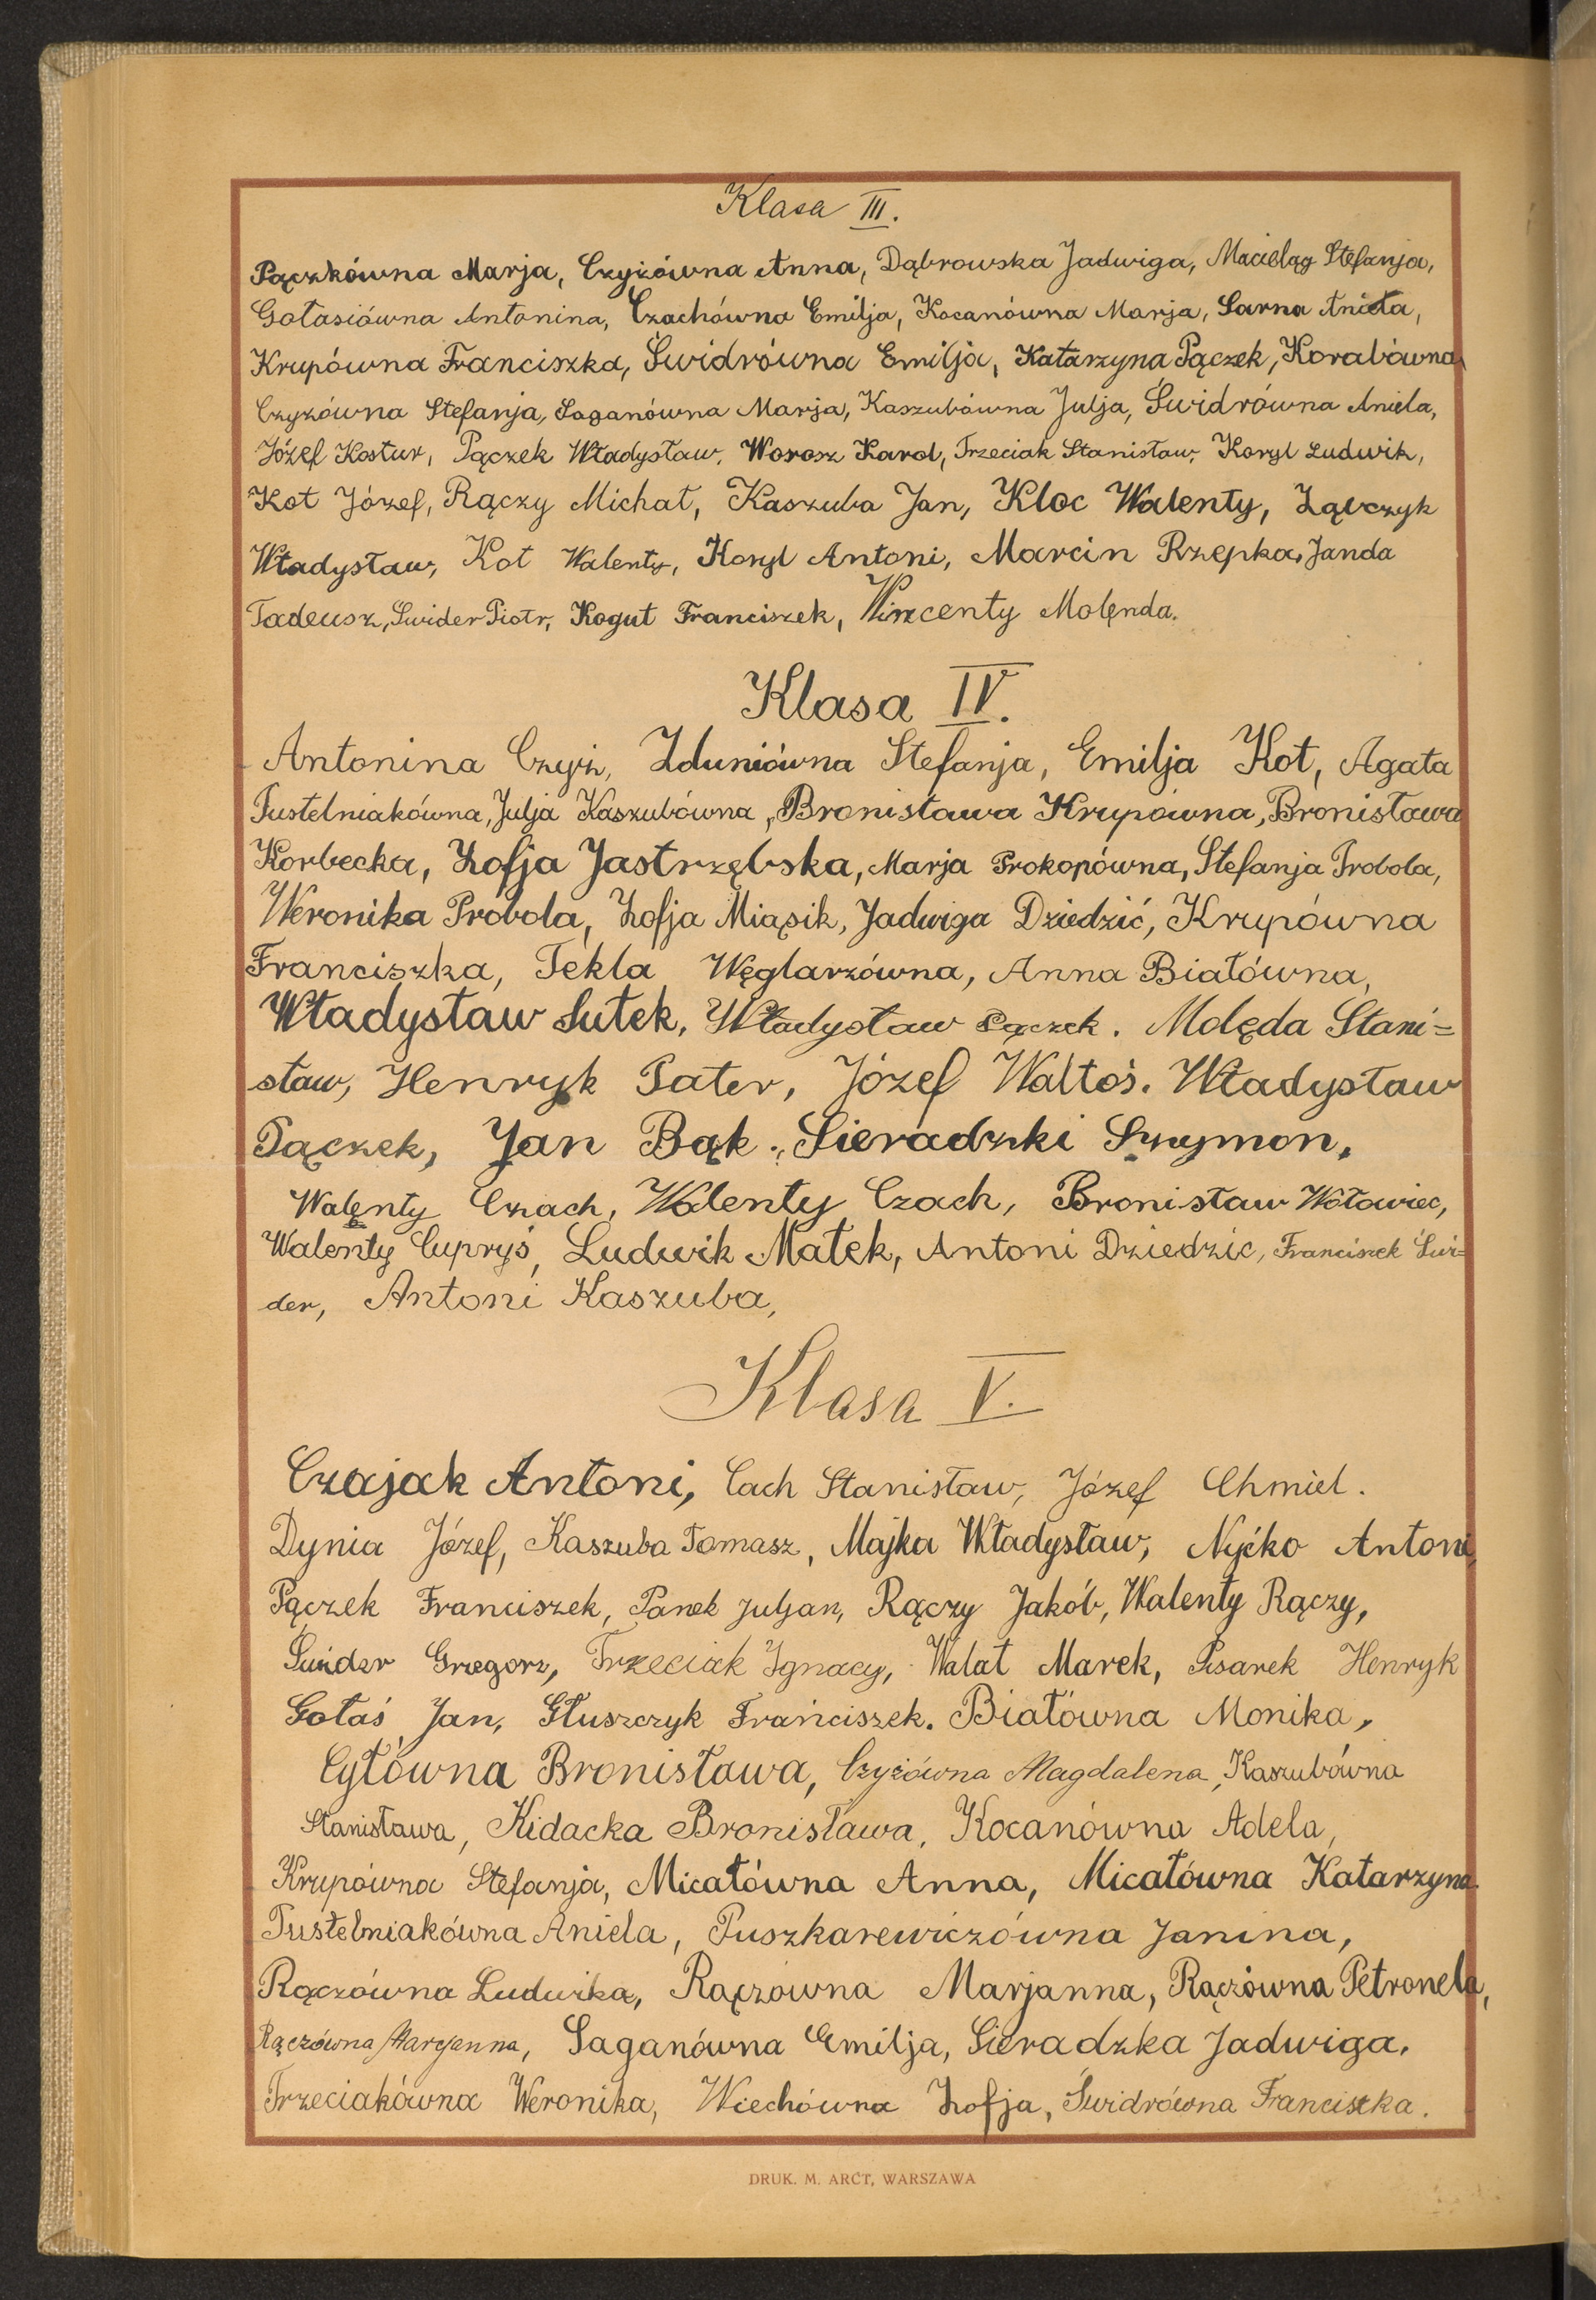 Klasa III.
Pączkówna Marja, Czyżówna Anna, Dąbrowska Jadwiga, Macieląg Stefanja,
Gołasiówna Antonina, Czachówna Emilja, Kocanówna Marja, Sarna Aniela,
Krupówna Franciszka, Świdrówna Emilja, Katarzyna Pączek, Korabówna
Czyżówna Stefanja, Saganówna Marja, Kaszubówna Julja, Świdrówna Aniela,
Józef Kostur, Pączek Władysław, Worosz Karol, Trzeciak Stanisław, Koryl Ludwik,
Kot Józef, Rączy Michał, Kaszuba Jan, Kloc Walenty, Ząbczyk
Władysław, Kot Walenty, Koryl Antoni, Marcin Rzepka, Janda
Tadeusz, Swider Piotr, Kogut Franciszek, Wincenty Molęnda.
Klasa IV.
Antonina Czyż, Zduniówna Stefanja, Emilja Kot, Agata
Pustelniakówna, Julja Kaszubówna, Bronisława Krupówna, Bronisława
Korbecka, Zofja Jastrzębska, Marja Prokopówna, Stefanja Probola,
Weronika Probola, Zofja Miąsik, Jadwiga Dziedzić, Krupówna
Franciszka, Tekla Węglarzówna, Anna Białówna,
Władysław Sutek, Władysław Pączek. Molęda Stani=
sław, Henryk Pater, Józef Waltoś. Władysław
Pączek, Jan Bąk, Sieradzki Szymon,
Walenty Czach, Walenty Czach, Bronisław Wołowiec,
Walenty Cupryś, Ludwik Małek, Antoni Dziedzic, Franciszek Świ=
der, Antoni Kaszuba,
Klasa V.
Czajak Antoni, Cach Stanisław, Józef Chmiel.
Dynia Józef, Kaszuba Tomasz, Majka Władysław, Nyćko Antoni,
Pączek Franciszek, Panek Juljan, Rączy Jakób, Walenty Rączy,
Świder Grzegorz, Trzeciak Ignacy, Walat Marek, Pisarek Henryk
Gołaś Jan, Głuszczyk Franciszek. Białówna Monika,
Cyłówna Bronisława, Czyżówna Magdalena, Kaszubówna
Stanisława, Kidacka Bronisława, Kocanówna Adela,
Krupówna Stefanja, Micałówna Anna, Micałówna Katarzyna.
Pustelniakówna Aniela, Puszkarewiczówna Janina,
Rączówna Ludwika, Rączówna Marjanna, Rączówna Petronela,
Rączówna Marjanna, Saganówna Emilja, Sieradzka Jadwiga.
Trzeciakówna Weronika, Wiechówna Zofja, Świdrówna Franciszka.
DRUK. M. ARCT, WARSZAWA